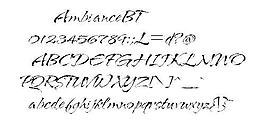 AmbianceBT
0123456789:;L=d?@
ABCDEFGHIJKLMNO
PQRSTUVWXYZ[\]^_`
abcdefghijklmnopqrstuvwxyz{|}